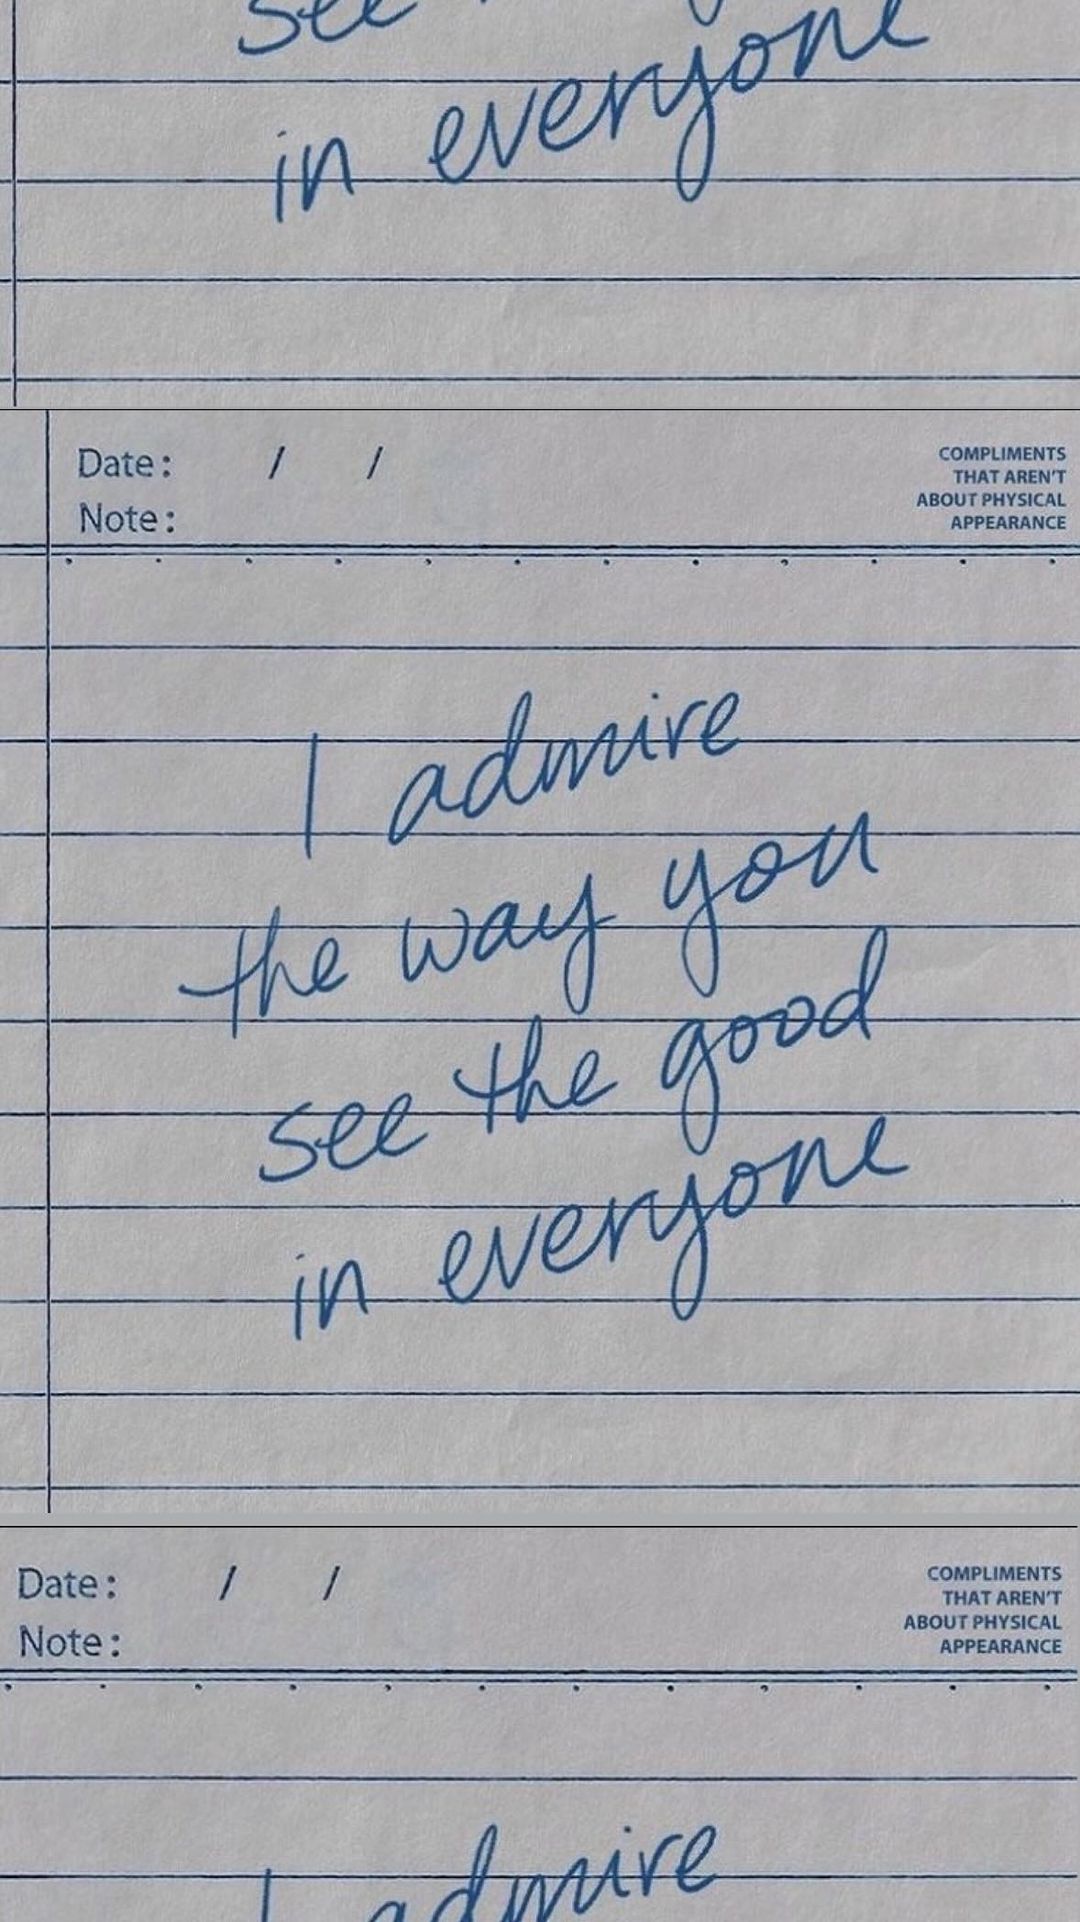 see
in everyone
Date: / /
Note:
COMPLIMENTS
THAT AREN'T
ABOUT PHYSICAL
APPEARANCE
I admire
the way you
see the good
in everyone
Date: / /
Note:
COMPLIMENTS
THAT AREN'T
ABOUT PHYSICAL
APPEARANCE
I admire